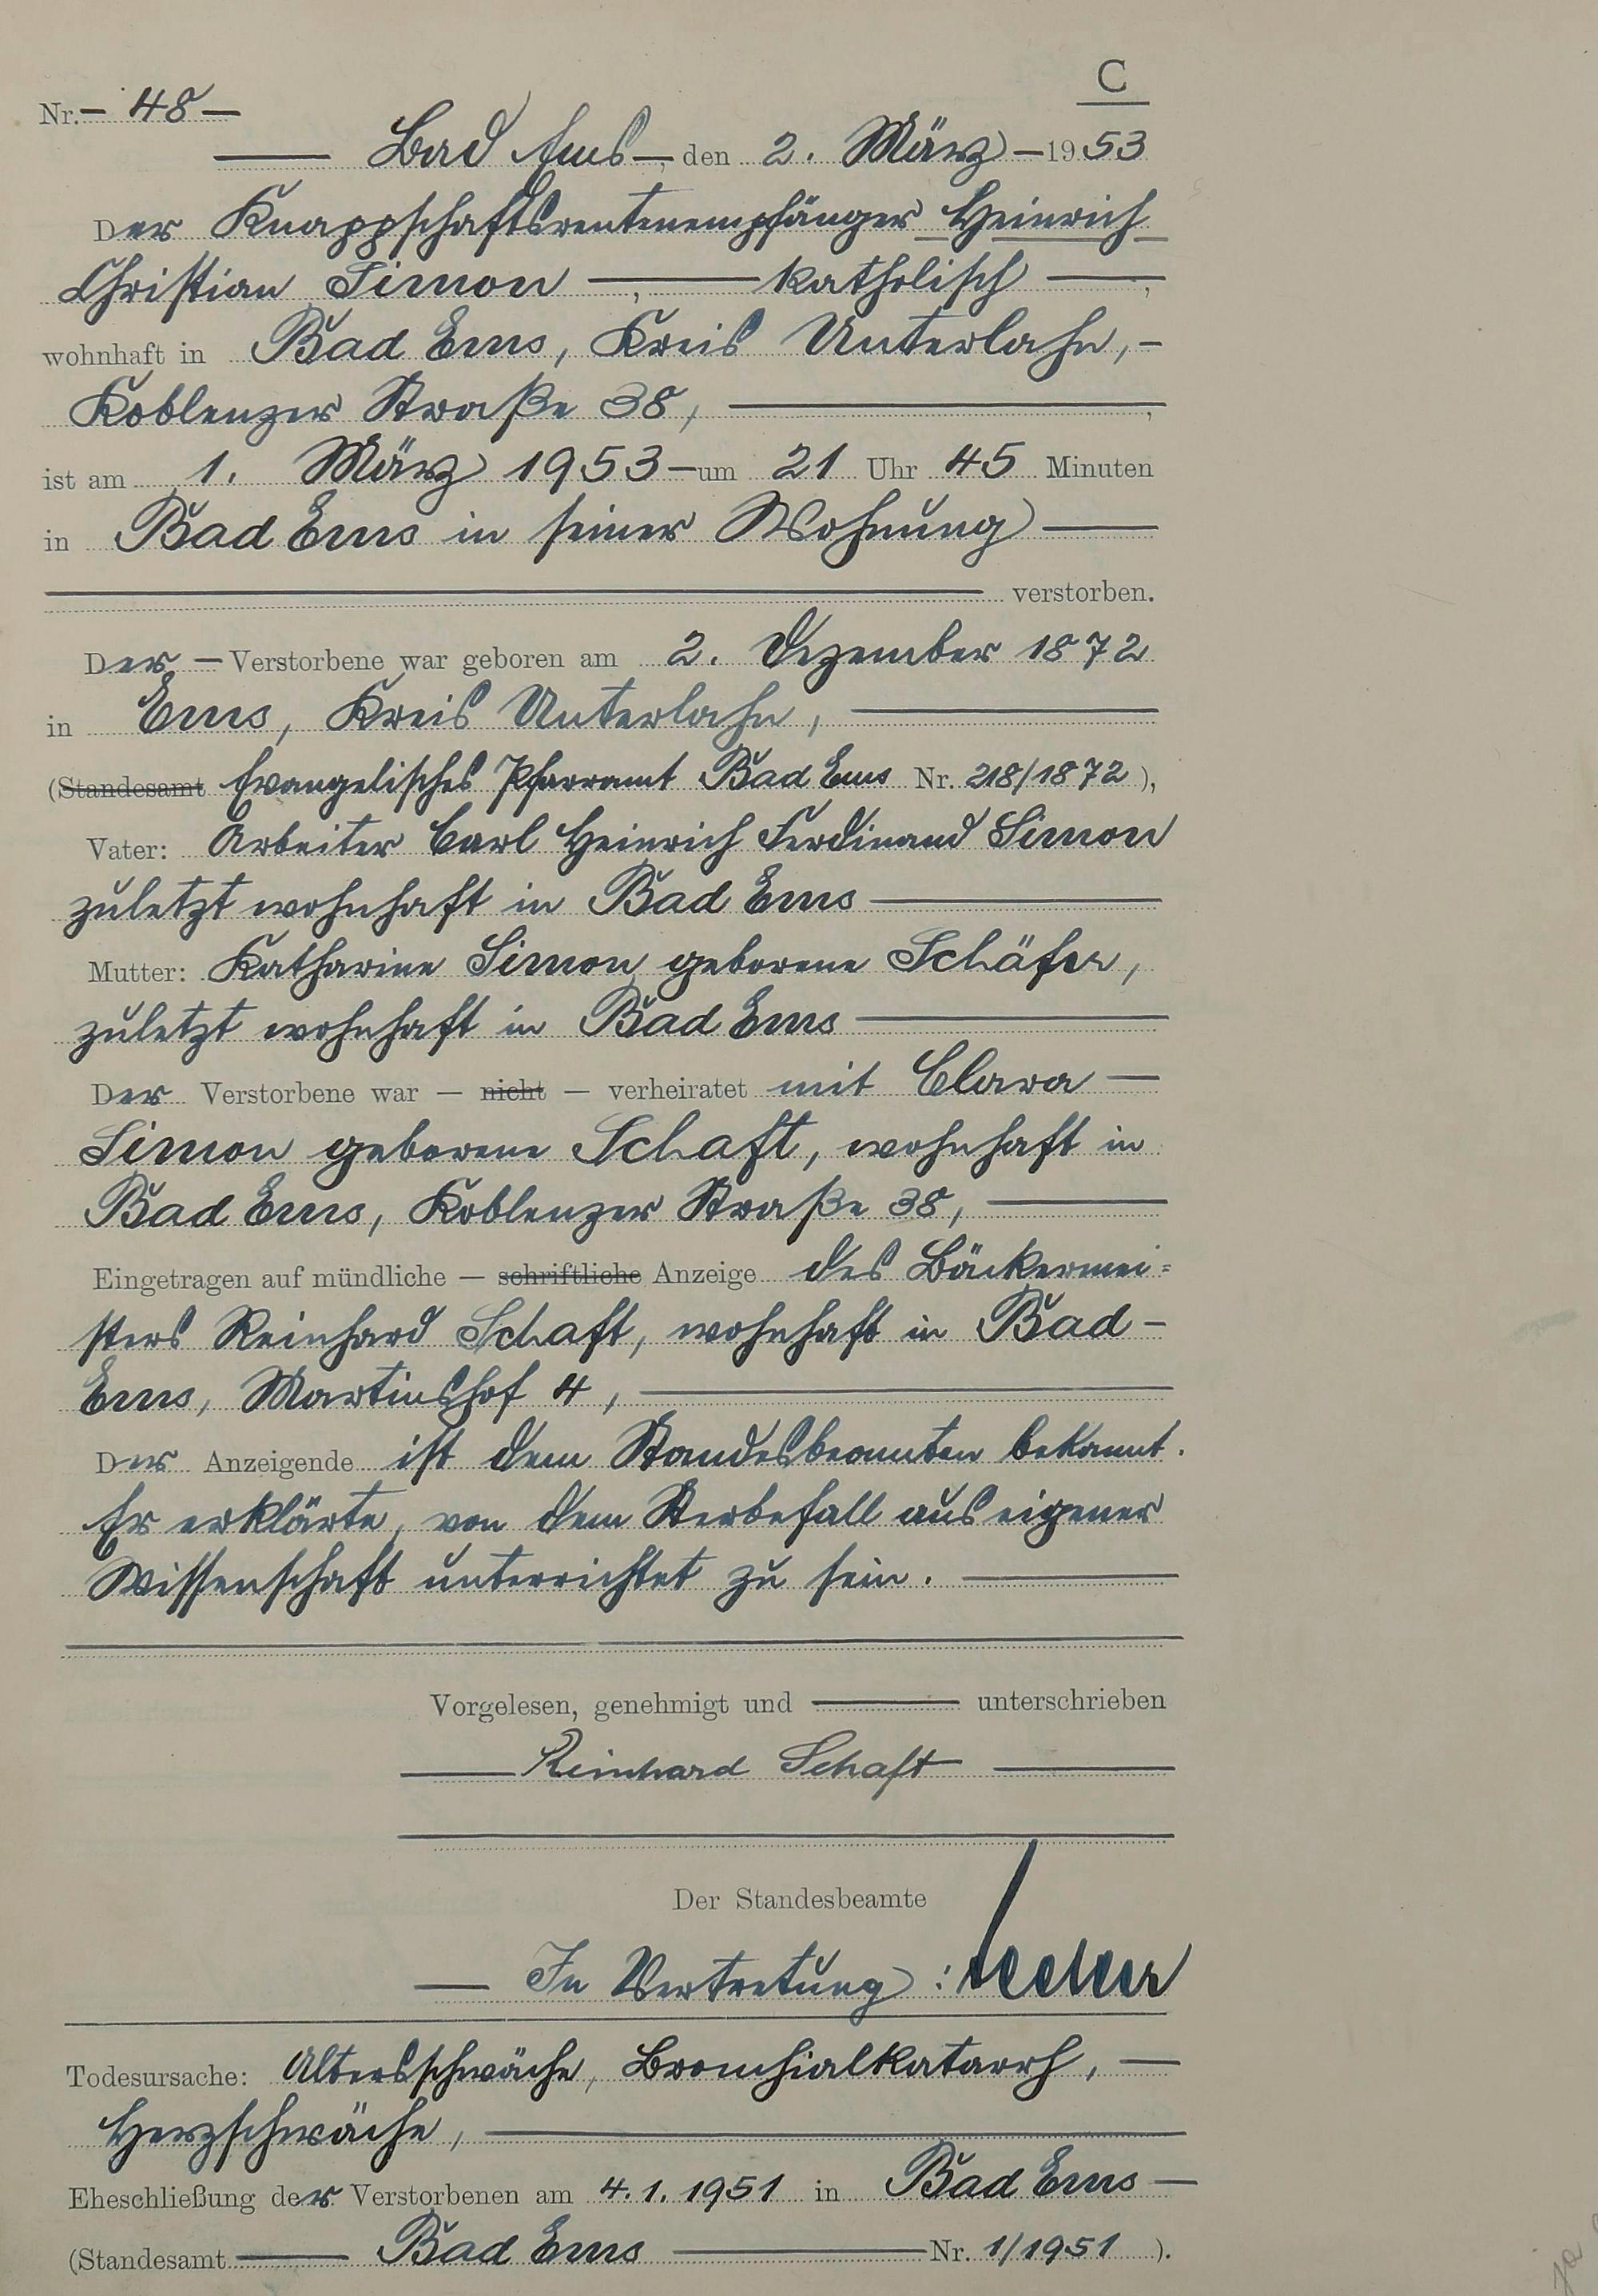 C
Nr. – 48 –
Bad Ems –, den 2. März – 1953
Der Knappschaftsrentenempfänger Heinrich
Christian Simon –, – katholisch –,
wohnhaft in Bad Ems, Kreis Unterlahn, –
Koblenzer Straße 38, –,
ist am 1. März 1953 – um 21 Uhr 45 Minuten
in Bad Ems in seiner Wohnung –
verstorben.
Der – Verstorbene war geboren am 2. Dezember 1872
in Ems, Kreis Unterlahn, –
(Standesamt Evangelisches Pfarramt Bad Ems Nr. 218/1872),
Vater: Arbeiter Carl Heinrich Ferdinand Simon
zuletzt wohnhaft in Bad Ems –
Mutter: Katharine Simon geborene Schäfer,
zuletzt wohnhaft in Bad Ems –
Der Verstorbene war – nicht – verheiratet mit Clara –
Simon geborene Schaft, wohnhaft in
Bad Ems, Koblenzer Straße 38, –
Eingetragen auf mündliche – schriftliche Anzeige des Bäckermei=
sters Reinhard Schaft, wohnhaft in Bad –
Ems, Martinshof 4, –
Der Anzeigende ist dem Standesbeamten bekannt.
Er erklärte, von dem Sterbefall aus eigener
Wissenschaft unterrichtet zu sein. –
Vorgelesen, genehmigt und – unterschrieben
Reinhard Schaft
Der Standesbeamte
– In Vertretung:
Todesursache: Altersschwäche, Bronchialkatarrh, –
Herzschwäche, –
Eheschließung der Verstorbenen am 4.1.1951 in Bad Ems –
(Standesamt – Bad Ems – Nr. 1/1951).